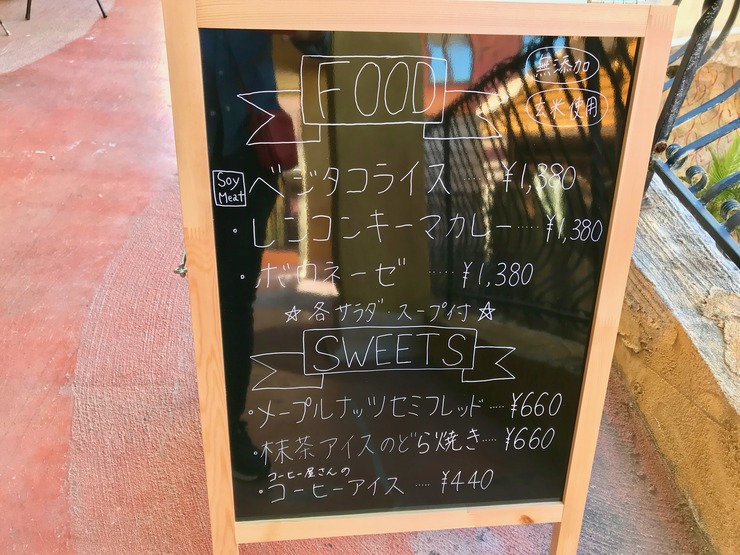 FOOD
無添加
玄米使用
Soy Meat ベジタコライス ····· ¥1,380
・レンコンキーマカレー ····· ¥1,380
・ボロネーゼ ····· ¥1,380
☆各サラダ・スープ付☆
SWEETS
・メープルナッツセミフレッド ····· ¥660
・抹茶アイスのどら焼き ···· ¥660
コーヒー屋さんの
・コーヒーアイス ····· ¥440